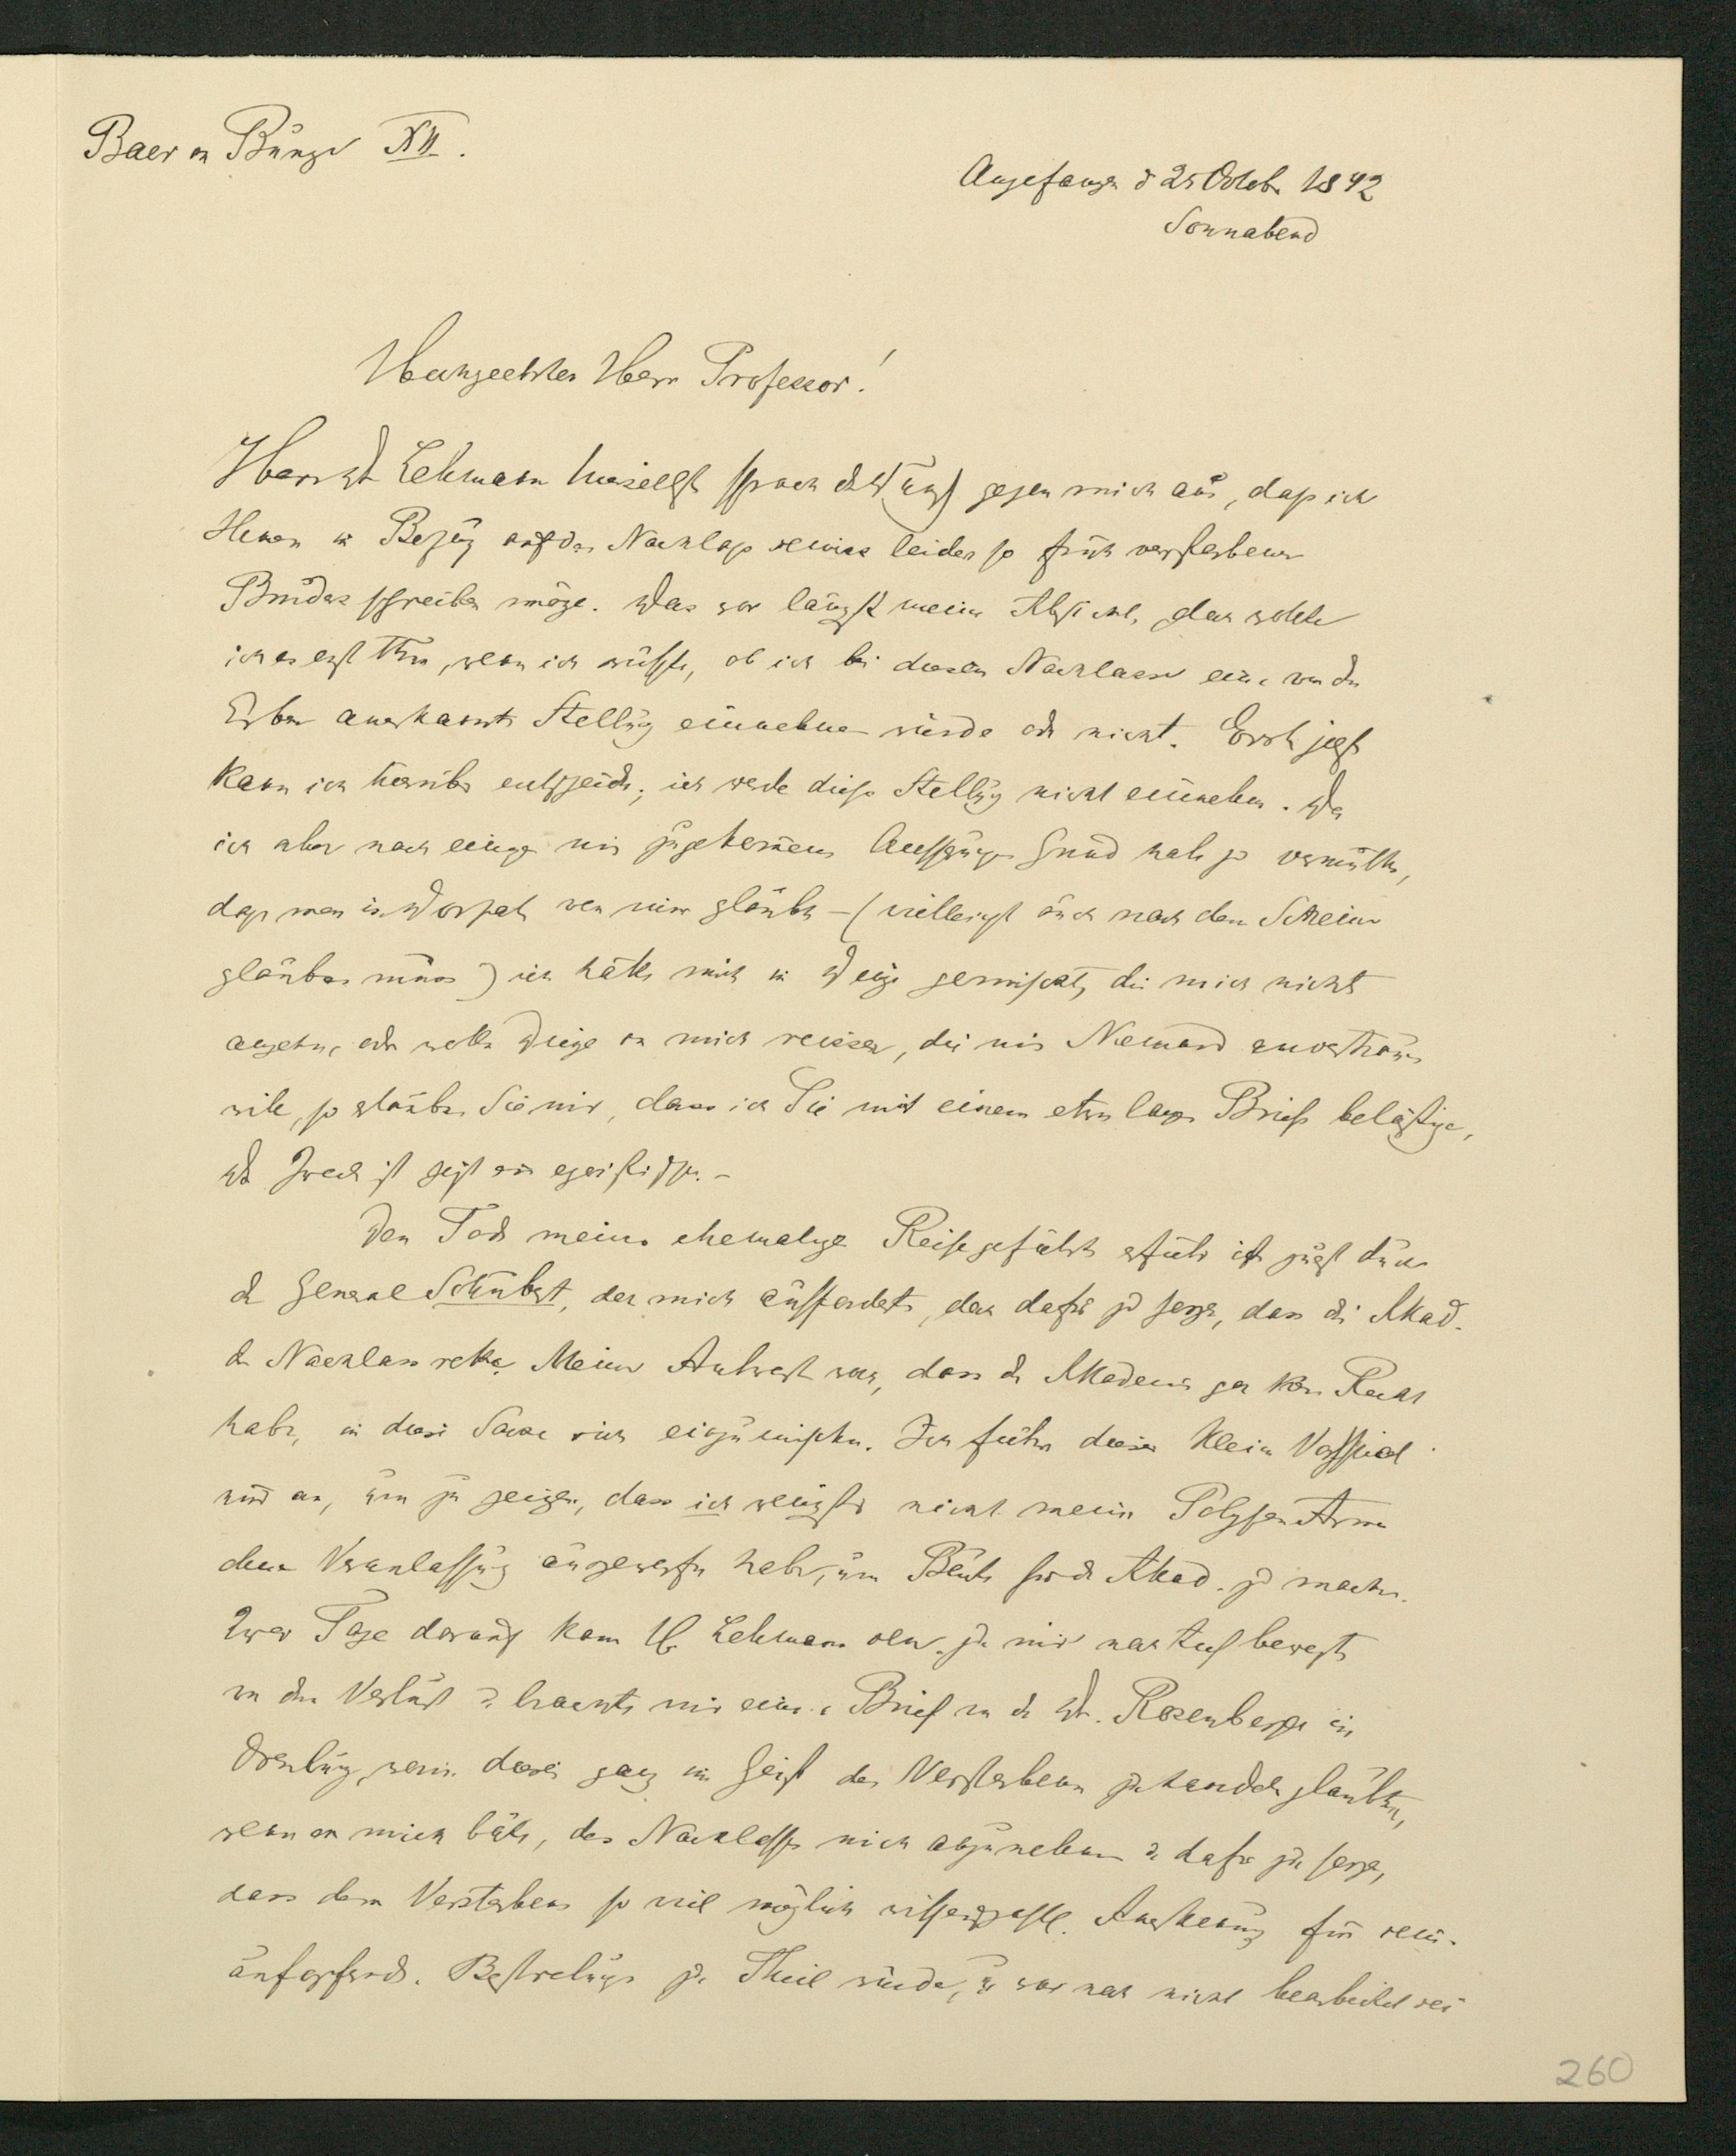 Baer an Bunge XII.
Angefangen d 25 Octobr 1842
Sonnabend
Hochgeehrter Herr Professor!
Herr Dr Lehmann hieselbst sprach den Wunsch gegen mich aus, daß ich
Ihnen in Bezug auf den Nachlaß seines leider so früh verstorbenen
Bruders schreiben möge. Das war längst meine Absicht, doch wollte
ich es erst thun, wenn ich wüßte, ob ich bei diesem Nachlasse eine von den
Erben anerkannte Stellung einnehmen würde oder nicht. Erst jetzt
kann ich hierüber entscheiden; ich werde diese Stellung nicht einnehmen. Da
ich aber nach einigen mir zugekommenen Äusserungen Grund habe zu vermuthen,
daß man in Dorpat von mir glaubt – (vielleicht auch nach dem Scheine
glauben muss) ich hätte mich in Dinge gemischt, die mich nicht
angehen, oder wolle Dinge an mich reissen, die mir Niemand anvertrauen
will, so glauben Sie mir, dass ich Sie mit einem etwas langen Briefe belästige,
Der Zweck ist ein egoistischer. –
Den Tod meines ehemaligen Reisegefährten erfuhr ich zuerst durch
den General Schubert, der mich aufforderte, doch dafür zu sorgen, dass die Akad.
den Nachlass rette. Meine Antwort war, dass die Akademie gar kein Recht
habe, in diese Sache sich einzumischen. Ich führe dieses kleine Vorspiel
nur an, um zu zeigen, dass ich wenigstens nicht meine Polypen Arme
ohne Veranlassung ausgeworfen habe, um Beute für die Akad. zu machen.
Zwei Tage darauf kam Hr Lehmann sen. zu mir noch tief bewegt
von dem Verlust u brachte mir einen Brief von dem Dr. Rosenberger in
Orenburg, worin dieser ganz im Geist des Verstorbenen zu handeln glaubte,
wenn er mich bäte, des Nachlasses mich anzunehmen u dafür zu sorgen,
dass dem Verstorbenen so viel möglich wissenschaftl. Anerkennung für seine
aufopfernden Bestrebungen zu Theil würde, u was noch nicht bearbeitet sei
260